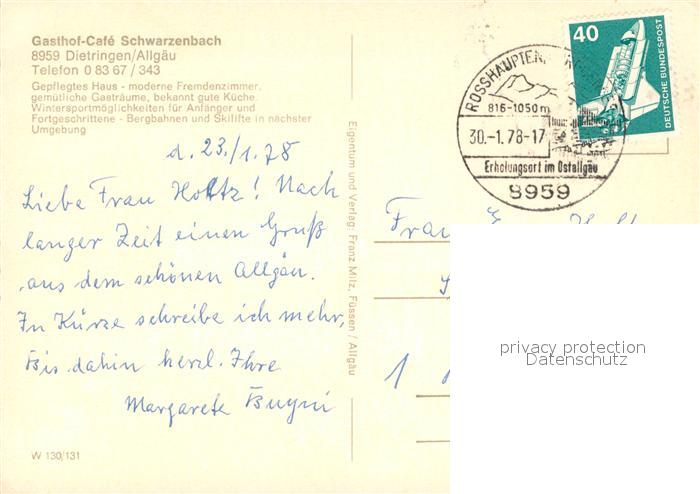 Gasthof-Café Schwarzenbach
8959 Dietringen/Allgäu
Telefon 0 83 67 / 343
Gepflegtes Haus - moderne Fremdenzimmer,
gemütliche Gasträume, bekannt gute Küche.
Wintersportmöglichkeiten für Anfänger und
Fortgeschrittene - Bergbahnen und Skilifte in nächster
Umgebung
d. 23./1.78
Liebe Frau Holtz! Nach
langer Zeit einen Gruß
aus dem schönen Allgäu.
In Kürze schreibe ich mehr,
Bis dahin herzl. Ihre
Margarete
W 130/131
Eigentum und Verlag: Franz Milz, Füssen / Allgäu
ROSSHAUPTEN
816-1050m
30.-1.78-17
Erholungsort im Ostallgäu
8959
40
DEUTSCHE BUNDESPOST
Frau
privacy protection
Datenschutz